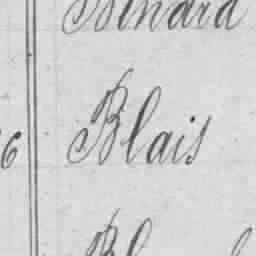 Benard
6 Blais